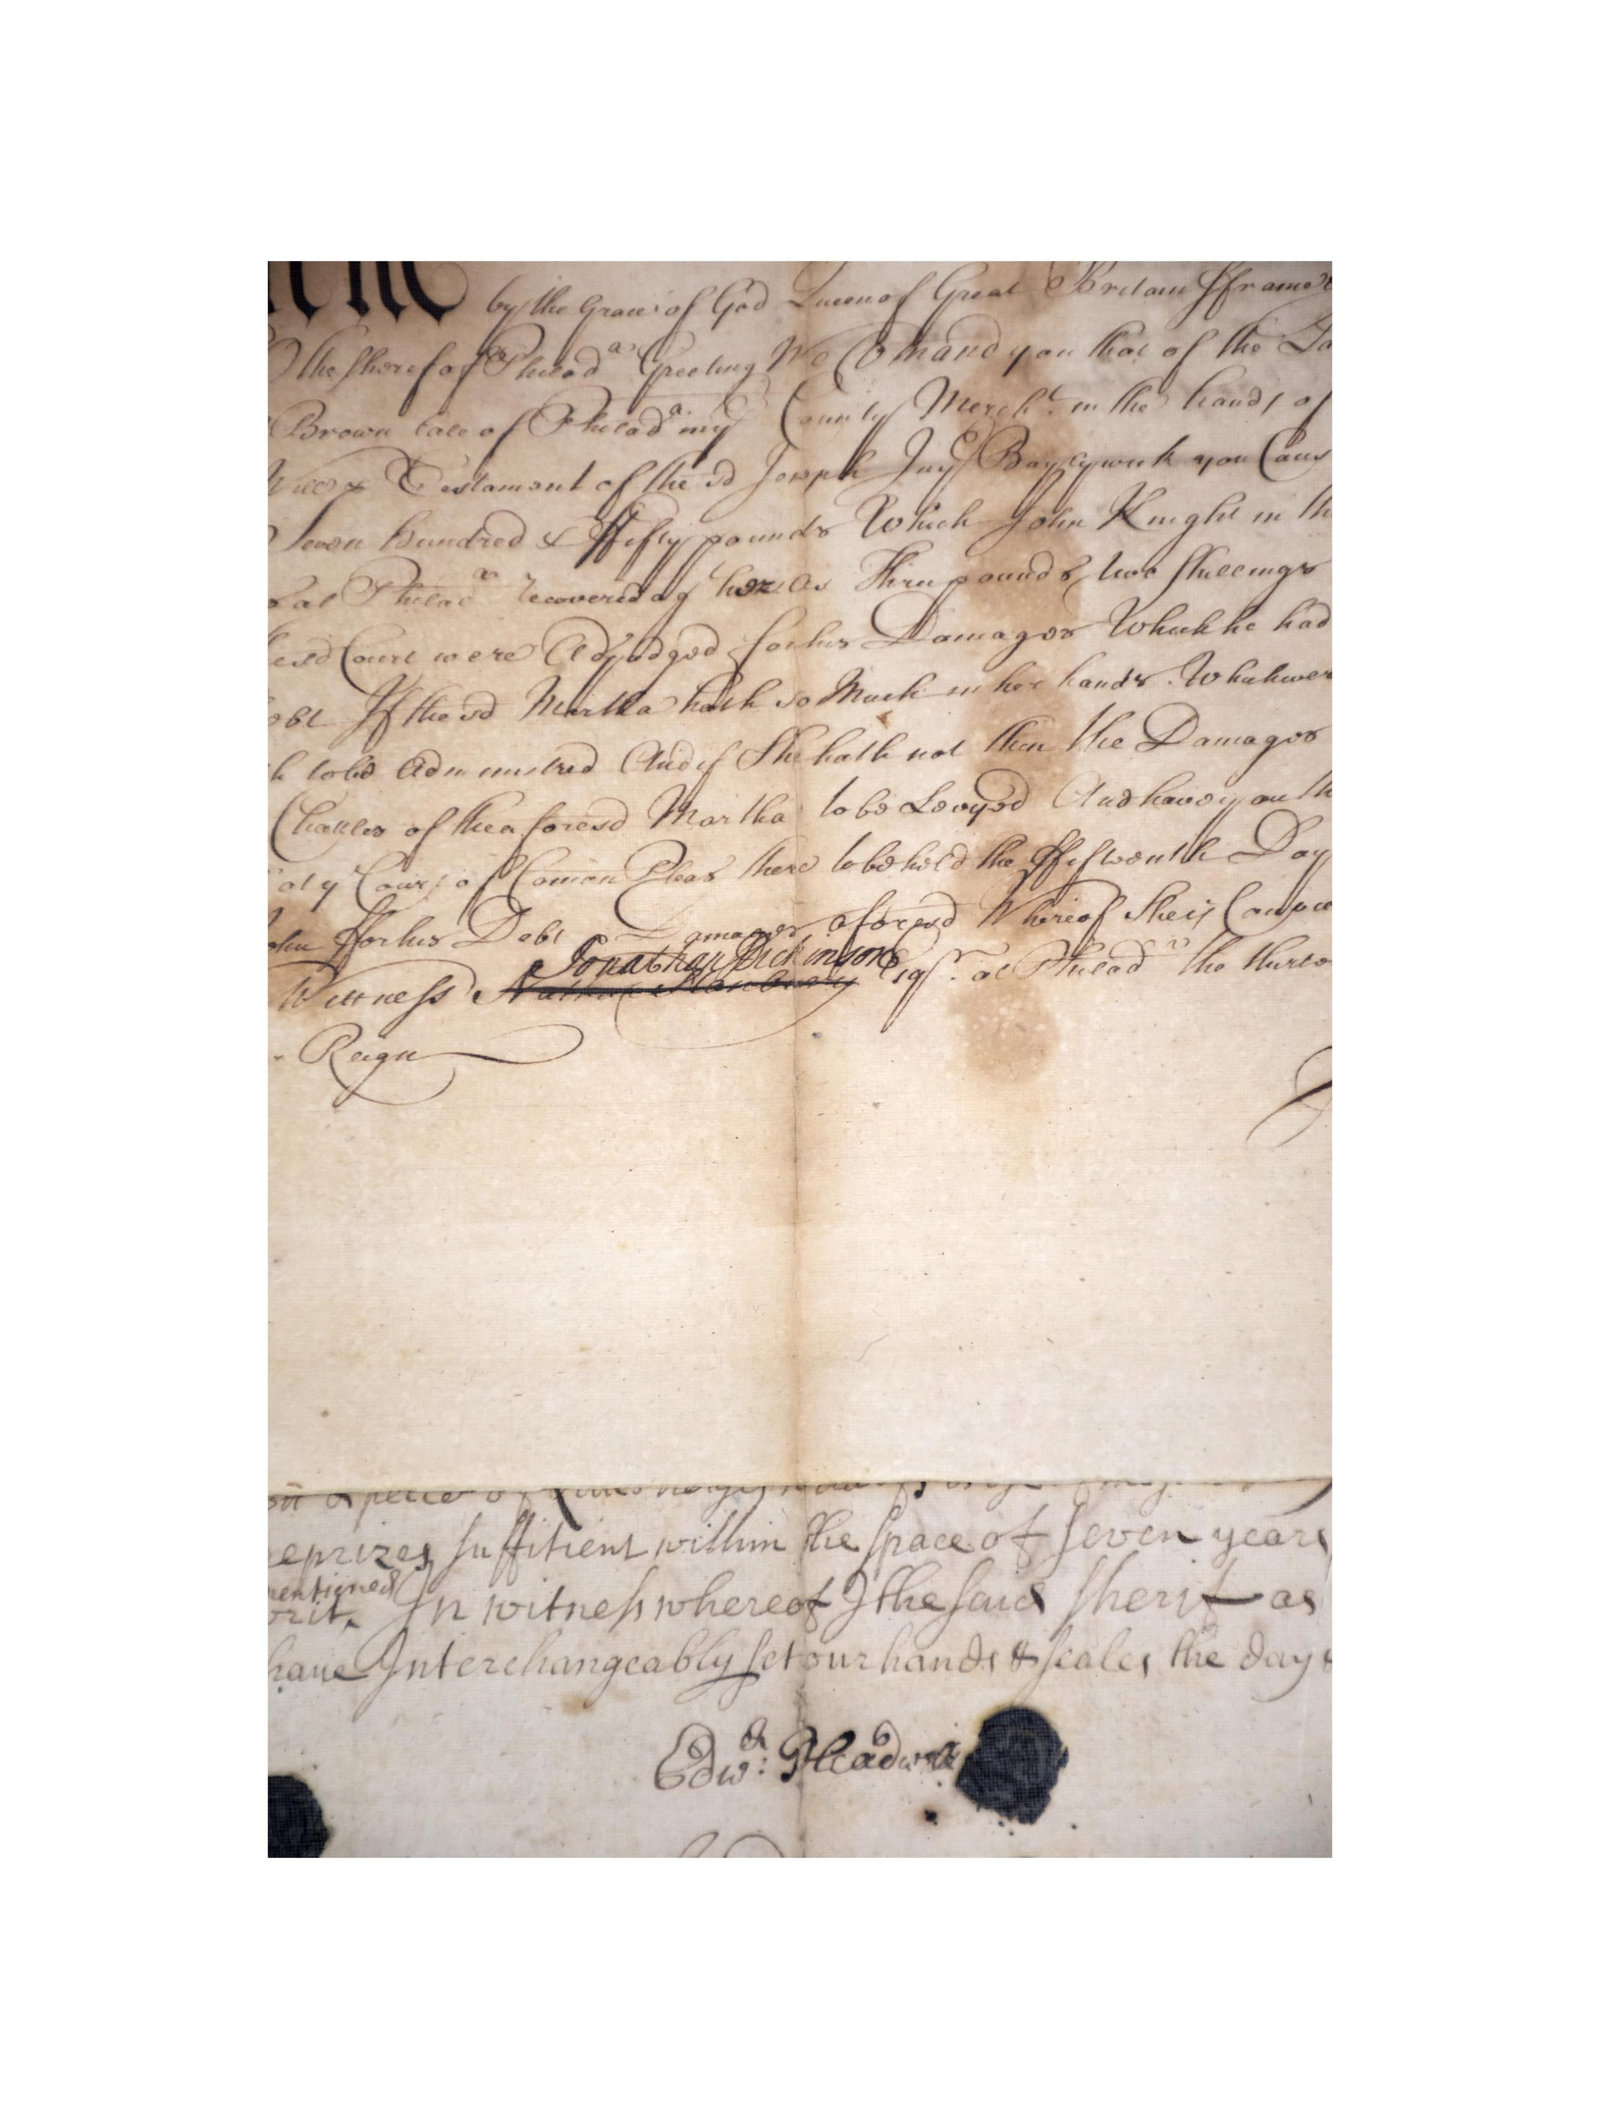 by the Grace of God Queen of Great Britain ffrance
the Sherif of Philad^a Greeting We Comand you that of the
Brown late of Philad^a in y^e County Merch^t in the hands of
Will & Testament of the sd Joseph In y^r Baylywick you Caus
Seven hundred & ffifty pounds Which John Knight in th
at Philad^a recovered ag her As Three pounds two Shillings
sd Court were Adjudged for his Damages Which he had
If the sd Martha hath so Much in her hands Which wer
to be Administred And if She hath not then the Damages
Chattles of the aforesd Martha to be Levyed And have you th
Court of Comon Pleas there to be held the ffifteenth Day
John ffor his Debt Damages aforesd Whereof She is Convic
Jonathan Dickinson
Wittness Esq^r. at Philad^a the
Reign
eprizes suffitient within the space of seven years
mentioned
writ. In witness whereof I the said Sherif as
have Interchangeably set our hands & seales the day &
Edw^d: